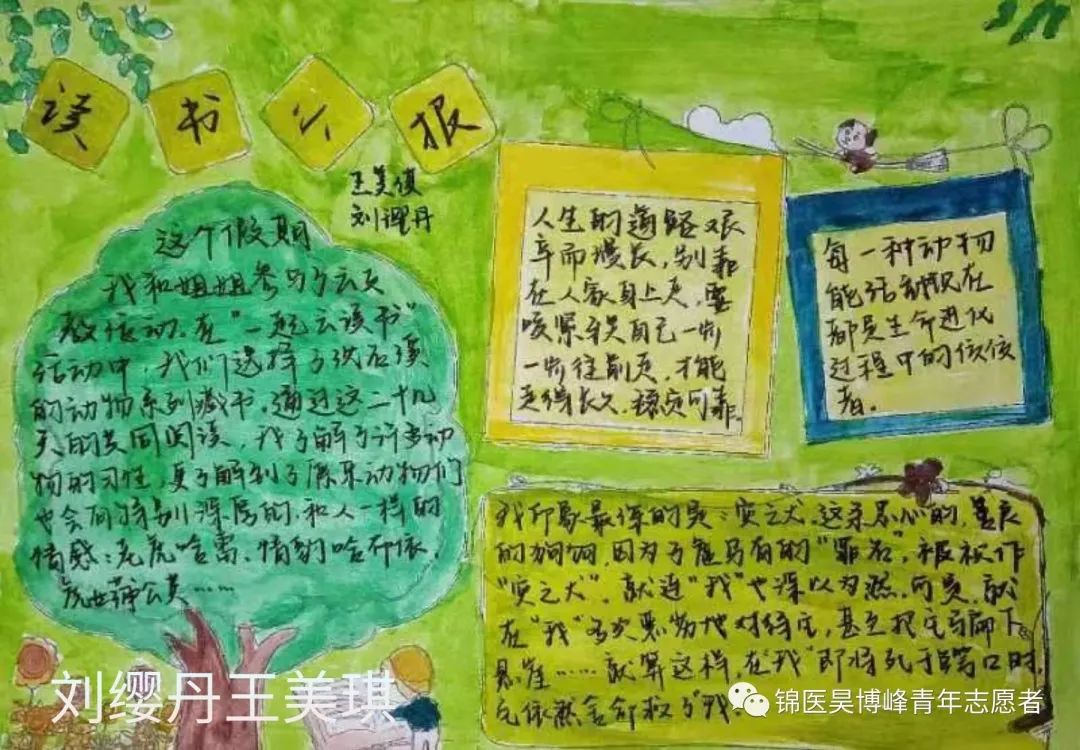 读书小报
王美琪
刘缨丹
这个假期
我和姐姐参与了云支
教活动，在“一起云读书”
活动中，我们选择了沈石溪
的动物系列藏书，通过这二十几
天的共同阅读，我了解了许多动
物的习性，更了解到了原来动物们
也会有特别深厚的，和人一样的
情感：老虎哈雷、情豹哈布依、
虎女蒲公英……
人生的道路艰
辛而漫长，别靠
在人家身上走，要
咬紧牙关自己一步
一步往前走，才能
走得长久，稳定可靠。
每一种动物
能活到现在
都是生命进化
过程中的佼佼
者。
我印象最深的是：灾之犬，这条忠心的，善良
的狗狗，因为了莫须有的“罪名”，被视作
“灾之犬”，就连“我”也深以为然，可是，就
在“我”多次恶劣地对待它，甚至把它骗下
悬崖……就算这样，在“我”即将死于鳄口时，
它依然舍命救了我。
刘缨丹王美琪
锦医昊博峰青年志愿者